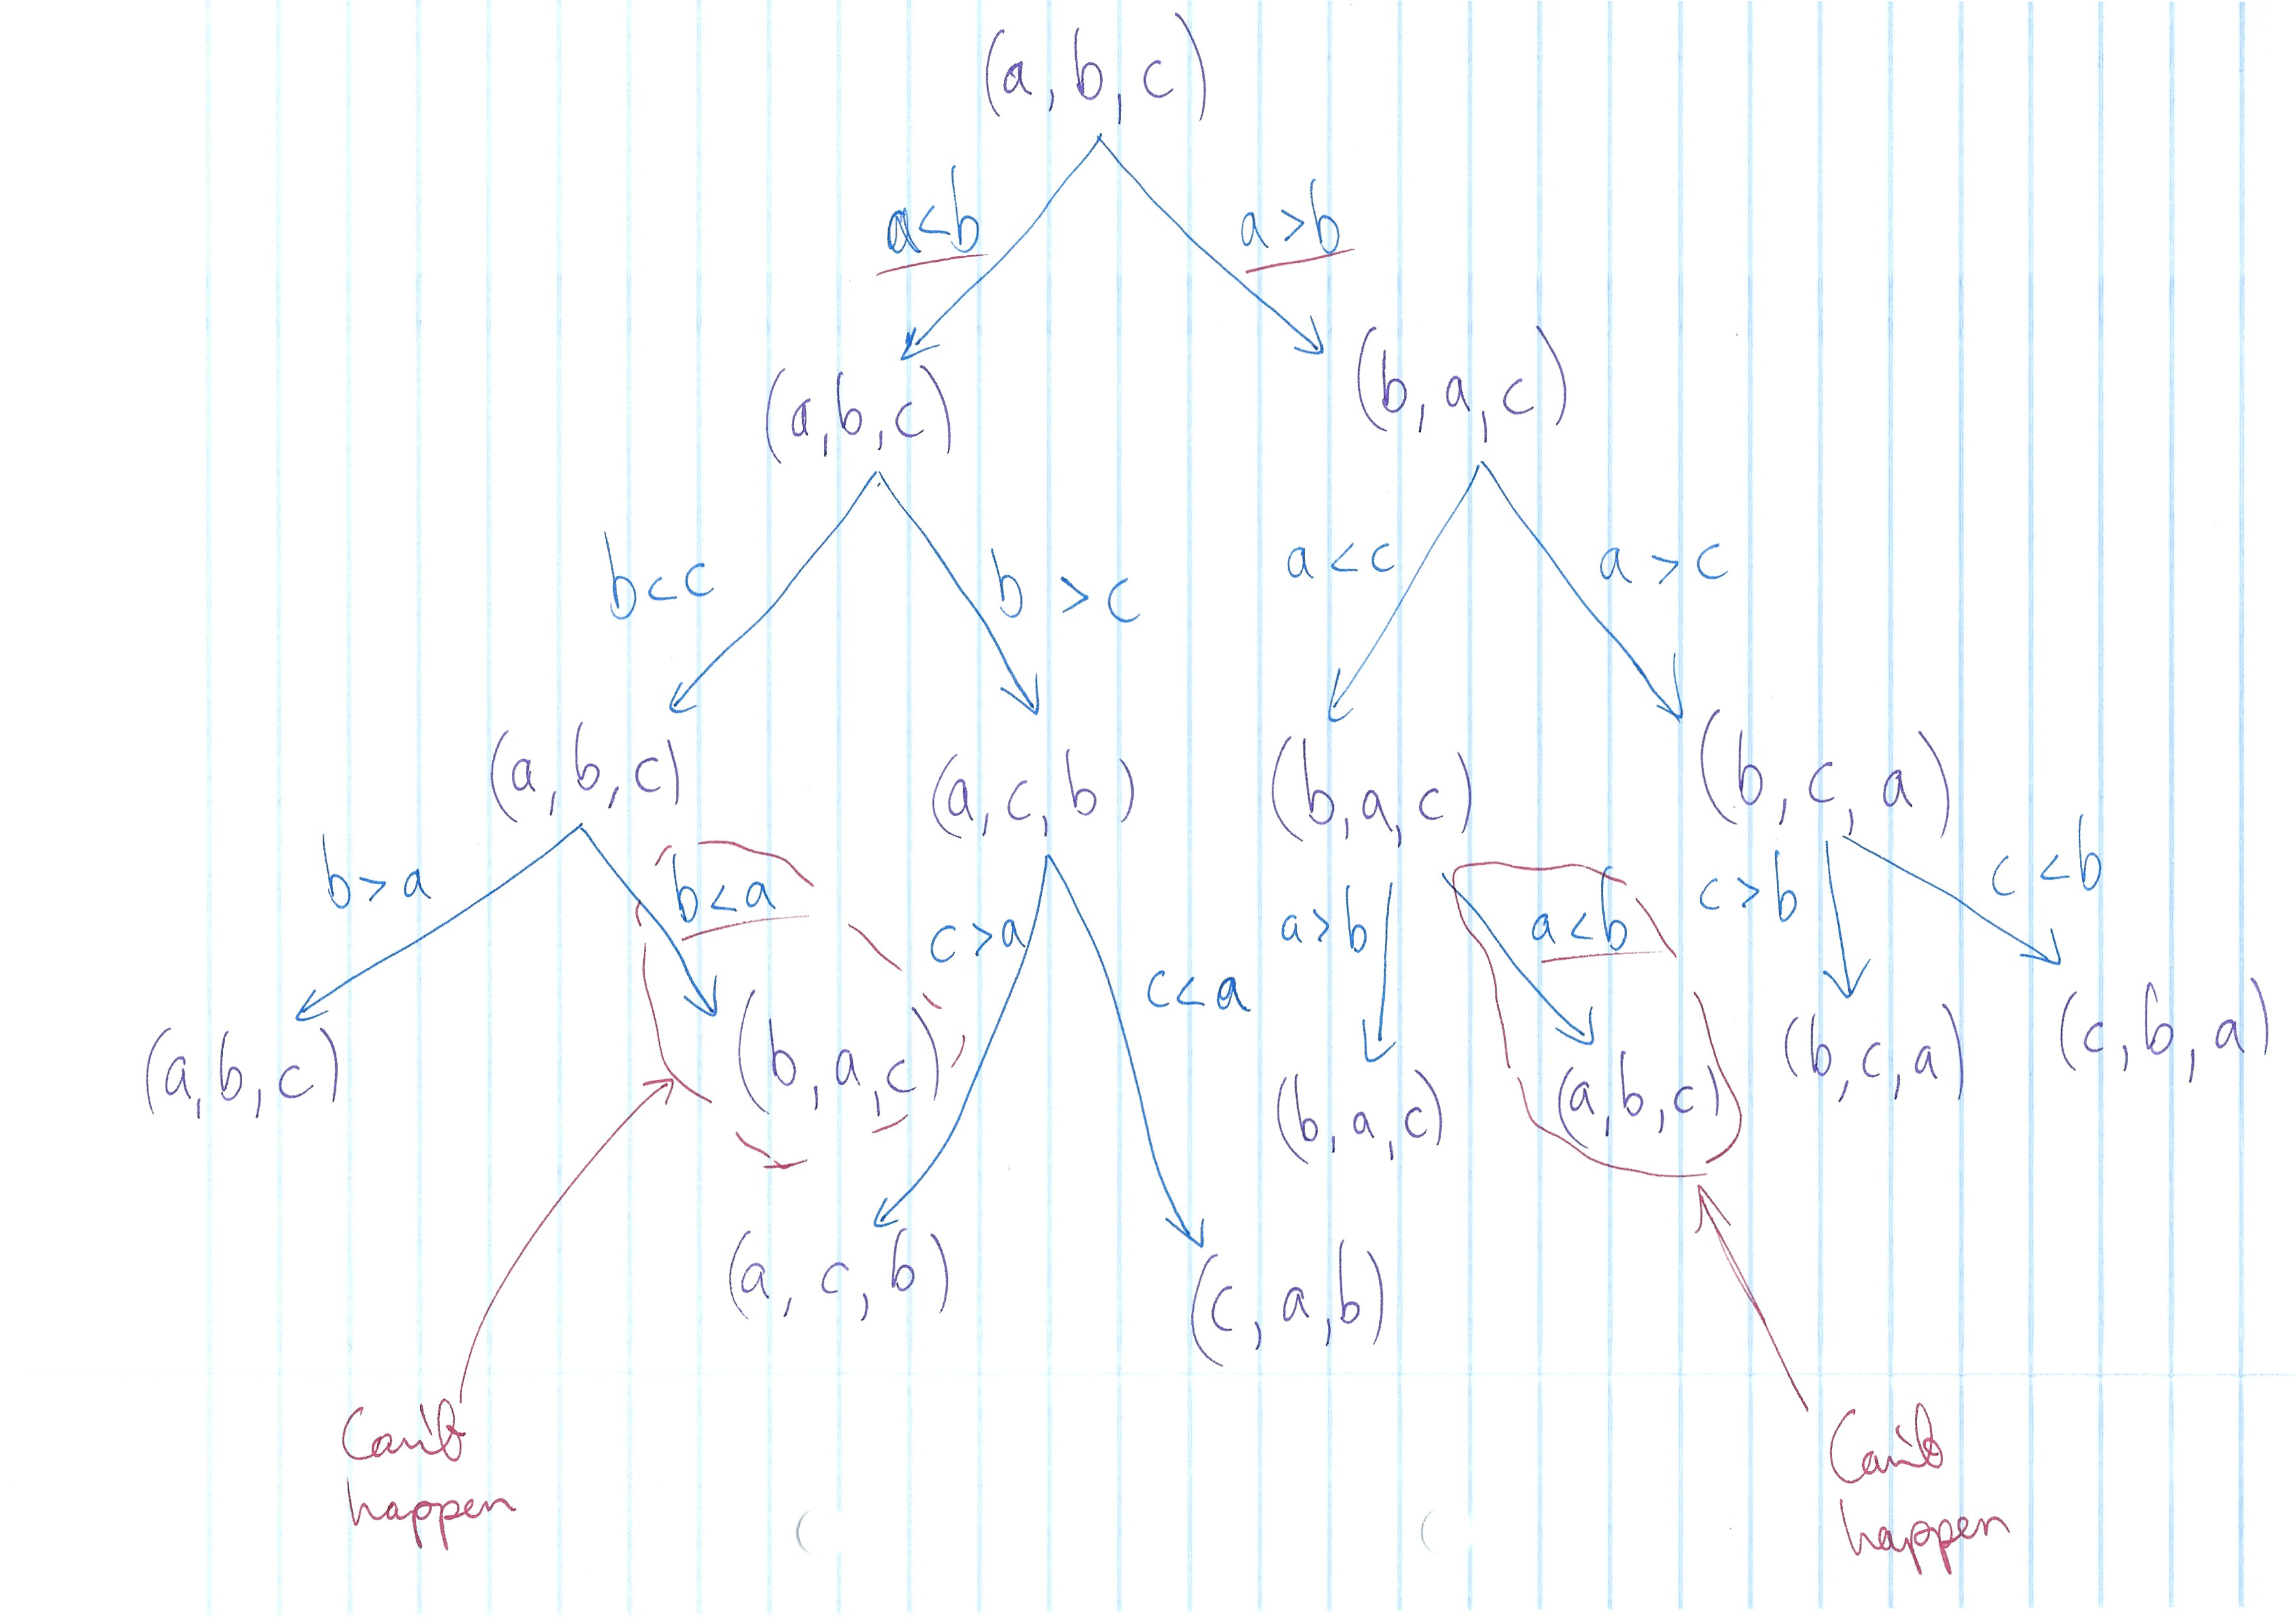 (a, b, c)
a<b
a>b
(a,b,c)
(b, a, c)
b<c
b >c
a<c
a > c
(a, b, c)
(a, c, b)
(b, a, c)
(b, c, a)
b>a
b<a
c>a
c<a
a>b
a<b
c>b
c<b
(a, b, c)
(b, a, c)
(b, a, c)
(a, b, c)
(b, c, a)
(c, b, a)
(a, c, b)
(c, a, b)
Can't
happen
Can't
happen